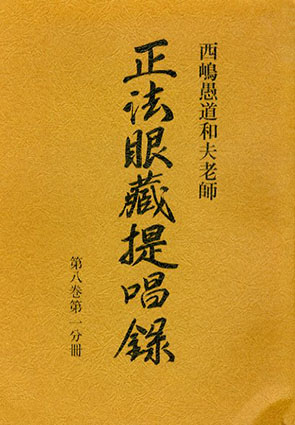 西嶋愚道和夫老師
正法眼藏提唱録
第八巻第一分冊